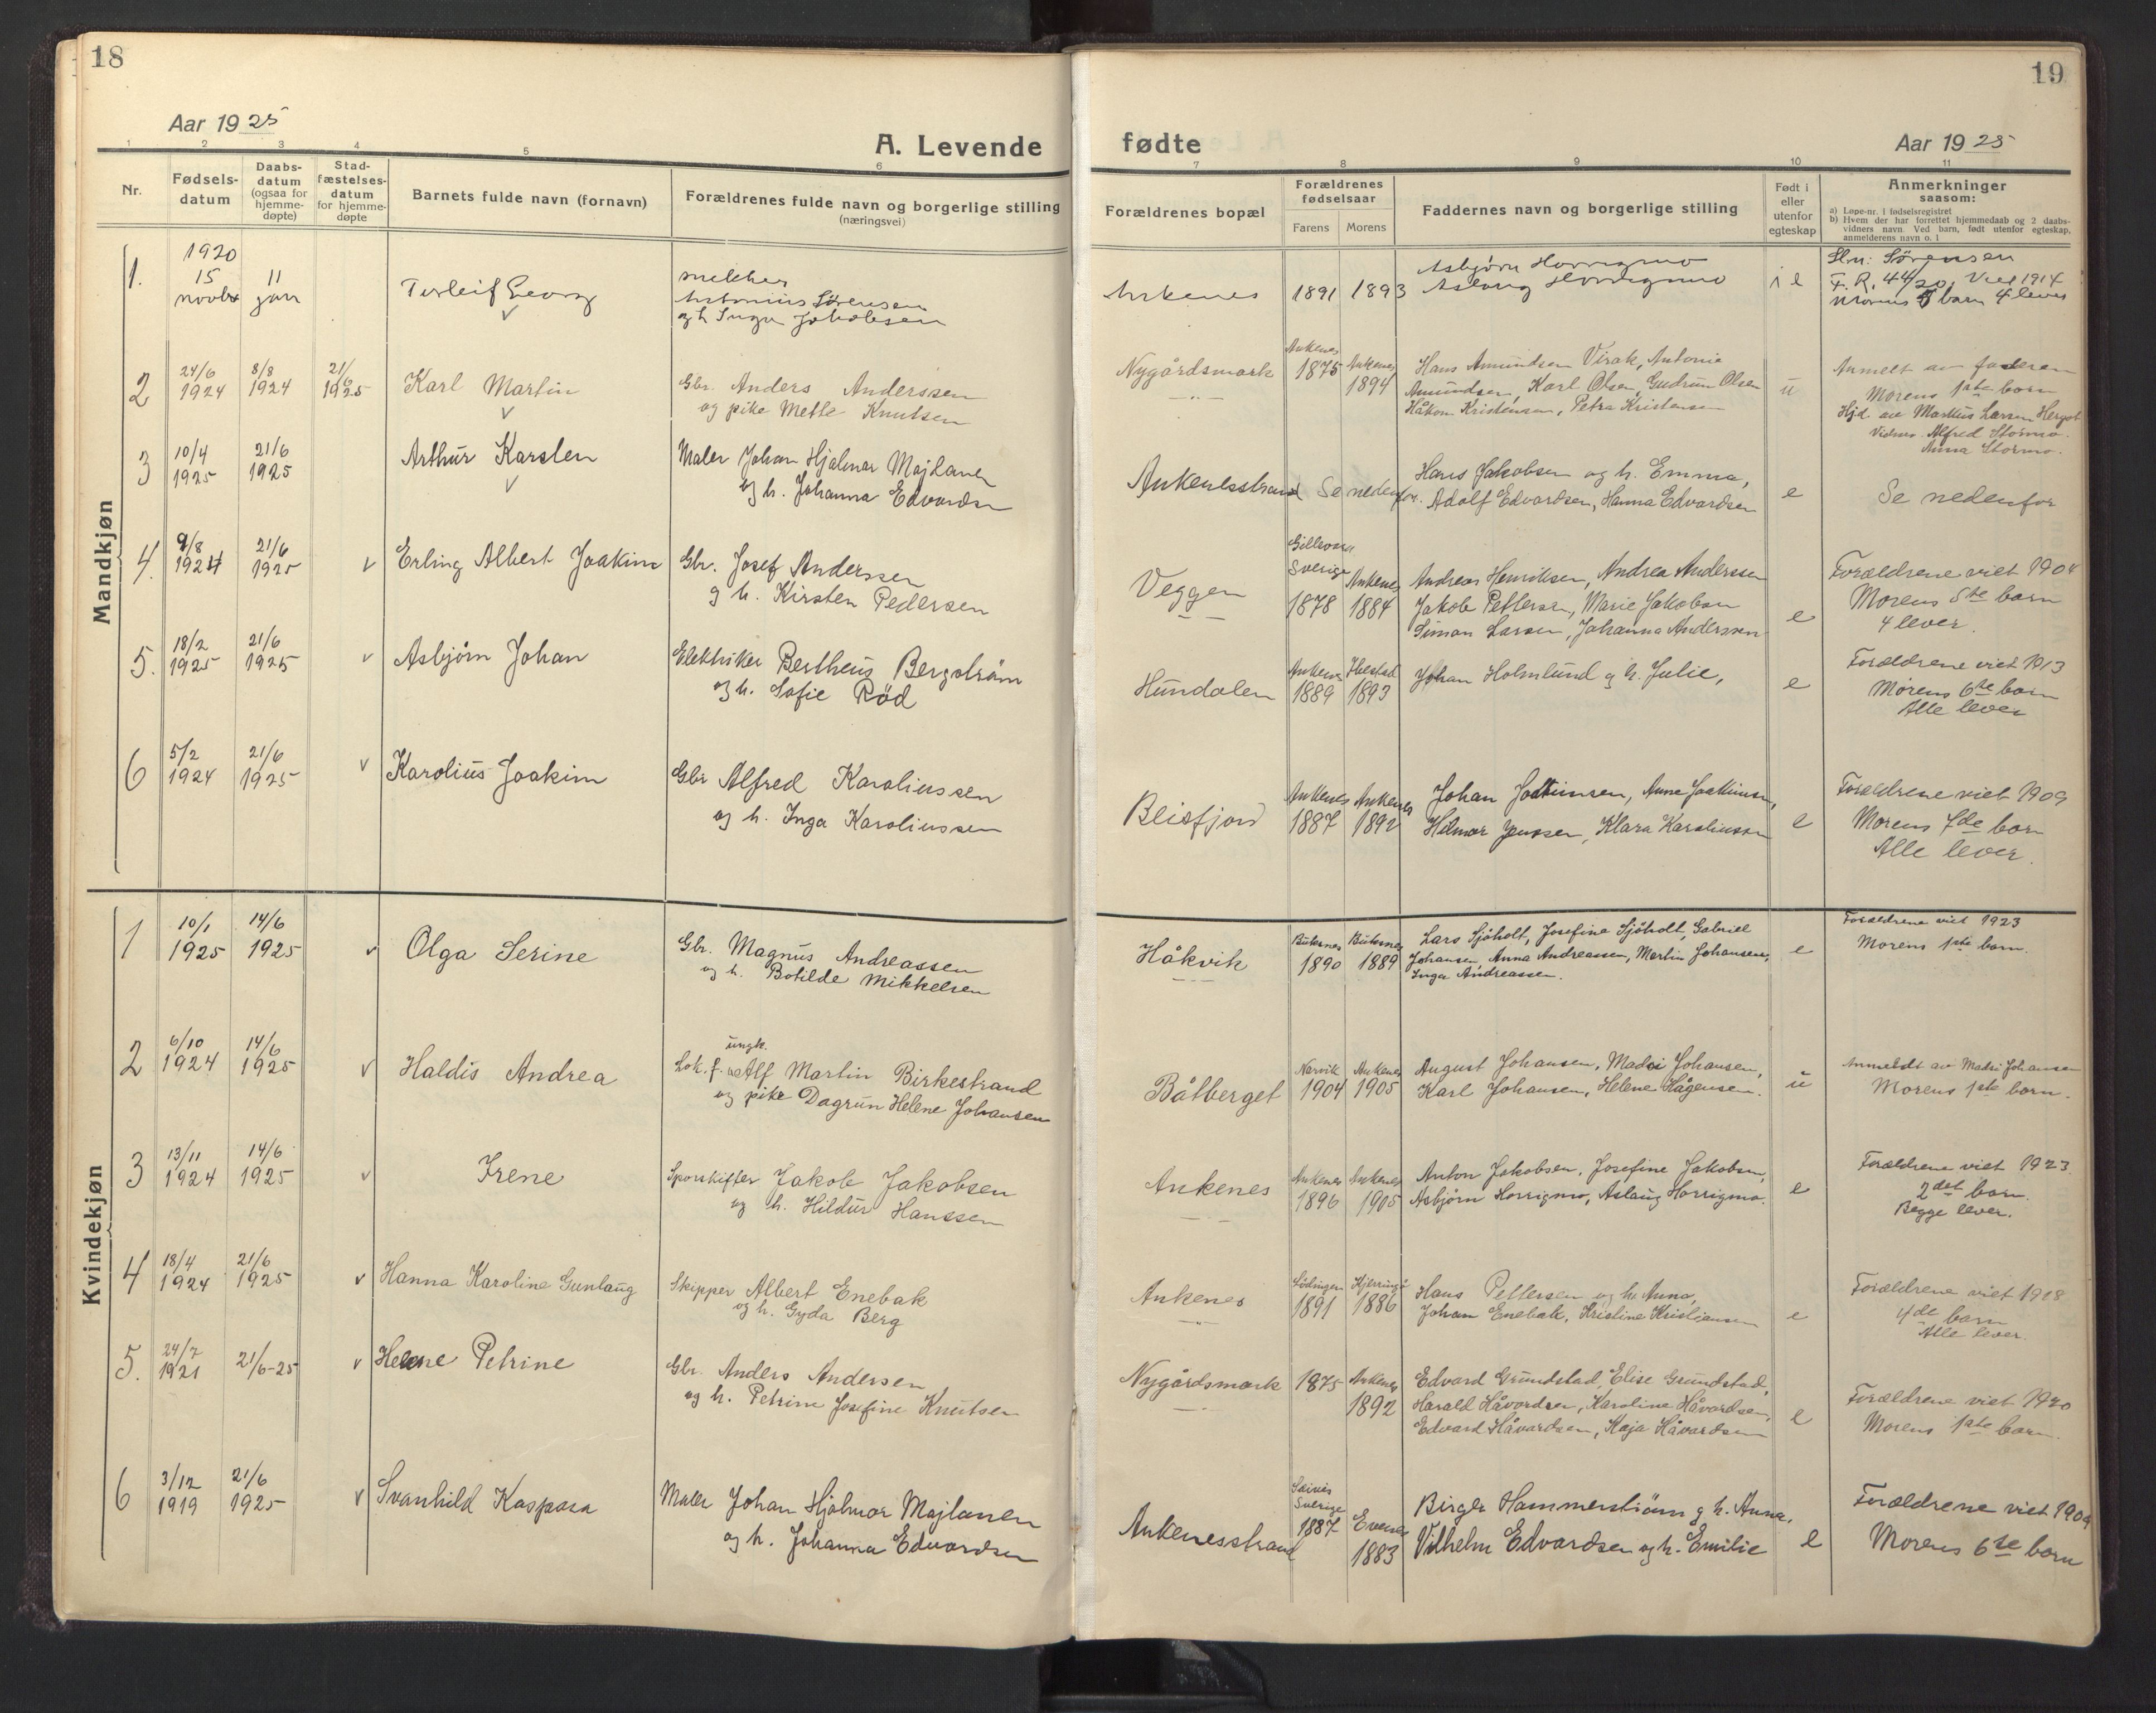 18
Aar 1925
A. Levende
1 2 3 4 5 6
Nr.
Fødsels-
datum
Daabs-
datum
(ogsaa for
hjemme-
døpte)
Stad-
fæstelses-
datum
for hjemme-
døpte
Barnets fulde navn (fornavn)
Forældrenes fulde navn og borgerlige stilling
(næringsvei)
Mandkjøn
1.
1920
15
novbr
11
jan
Torleif Georg
Antonius Sørensen
og h Inga Jakobsen
2
24/6
1924
8/8
1924
21/
6
1925
Karl Martin
Gbr. Anders Anderssen
og pike Mette Knutsen
3
10/4
1925
21/6
1925
Arthur Karsten
Maler Johan Hjalmar Majlanen
og h. Johanna Edvardsn
4.
9/8
1924
21/6
1925
v
Erling Albert Joakim
Gbr. Josef Anderssen
g h. Kirsten Pedersen
5.
18/2
1925
21/6
1925
v
Asbjørn Johan
Elektriker Bertheus Bergstrøm
og h. Sofie Rød
6
5/2
1924
21/6
1925
v
Karolius Joakim
Gbr Alfred Karoliussen
og h. Inga Karoliussen
Kvindekjøn
1
10/1
1925
14/6
1925
v
Olga Serine
Gbr. Magnus Andreassen
og h. Botilde Mikkelsen
2
6/10
1924
14/6
1925
v
Haldis Andrea
ungk.
Lok.f. Alf Martin Birkestrand
og pike Dagrun Helene Johansen
3
13/11
1924
14/6
1925
v
Irene
Sporskifter Jakob Jakobsen
og h. Hildur Hanssen
4
18/4
1924
21/6
1925
v
Hanna Karoline Gunlaug
Skipper Albert Enebak
og h. Gyda Berg
5.
24/7
1921
21/6-25
v
Helene Petrine
Gbr. Anders Andersen
og h. Petrine Josefine Knutsen
6
3/12
1919
21/6
1925
v
Svanhild Kaspara
Maler Johan Hjalmar Majlanen
og h. Johanna Edvardsen
19
fødte
Aar 1925
7 8 9 10 11
Forældrenes bopæl
Forældrenes
fødselsaar
Farens Morens
Faddernes navn og borgerlige stilling
Født i
eller
utenfor
egteskap
Anmerkninger
saasom:
a) Løpe-nr. i fødselsregistret
b) Hvem der har forrettet hjemmedaab og 2 daabs-
vidners navn. Ved barn, født utenfor egteskap,
anmelderens navn o. l
Ankenes
1891 1893
Asbjørn Horrigmo
Aslaug Horrigmo
i e
Sørensen
F. R. 44/20. Viet 1914
Morens 5 barn 4 lever
Nygårdsmark
Ankenes
1875
Ankenes
1894
Hans Amundsen Virak, Antonie
Amundsen, Karl Olsen, Gudrun Olsen
Håkon Kristensen, Petra Kristensen
u
Anmelt av faderen
Morens 1ste barn
Hjd. av Markus Larsen Hergot
Vidner Alfred Stormo.
Anna Stormo.
Ankenesstrand
Se nedenfor.
Hans Jakobsen og h. Emma,
Adolf Edvardsen, Hanna Edvardsen
e
Se nedenfor
Veggen
Sverige
1878
Ankenes
1884
Andreas Henriksen, Andrea Anderssen
Jakob Pettersen, Marie Jakobsen
Simon Larsen, Johanna Anderssen
e
Forældrene viet 1904
Morens 5te barn
4 lever.
Hundalen
Ankenes
1889
Ibestad
1893
Johan Holmlund g h. Julie,
e
Forældrene viet 1913
Morens 6te barn
Alle lever
Beisfjord
Ankenes
1887
Ankenes
1892
Johan Joakimsen, Anne Joakimsen,
Hilmar Jenssen, Klara Karoliussen
e
Forældrene viet 1909
Morens 7de barn
Alle lever.
Håkvik
Buksnes
1890
Buksnes
1889
Lars Sjöholt, Josefine Sjöholt, Gabriel
Johansen, Anna Andreassen, Martin Johansen,
Inga Andreassen.
e
Forældrene viet 1923
Morens 1ste barn.
Båtberget
Narvik
1904
Ankenes
1905
August Johansen, Madsi Johansen,
Karl Johansen, Helene Hågensen.
u
Anmeldt av Madsi Johansen
Morens 1ste barn.
Ankenes
Ankenes
1896
Ankenes
1905
Anton Jakobsen, Josefine Jakobsen,
Asbjørn Horrigmo, Aslaug Horrigmo.
e
Forældrene viet 1923
2det barn.
Begge lever.
Ankenes
Lødingen
1891
Kjerringø
1886
Hans Pettersen og h. Anna,
Johan Enebak, Kristine Kristiansen
e
Forældrene viet 1918
4de barn
Alle lever.
Nygårdsmark
1875
Ankenes
1892
Edvard Grundstad, Elise Grundstad,
Harald Håvardsen, Karoline Håvardsen,
Edvard Håvardsen, Kaja Håvardsen
e
Forældrene viet 1920
Morens 1ste barn.
Ankenesstrand
Sverige
1887
Evenes
1883
Birger Hammerstrøm g h. Anna,
Vilhelm Edvardsen og h. Emilie
e
Forældrene viet 1904
Morens 6te barn